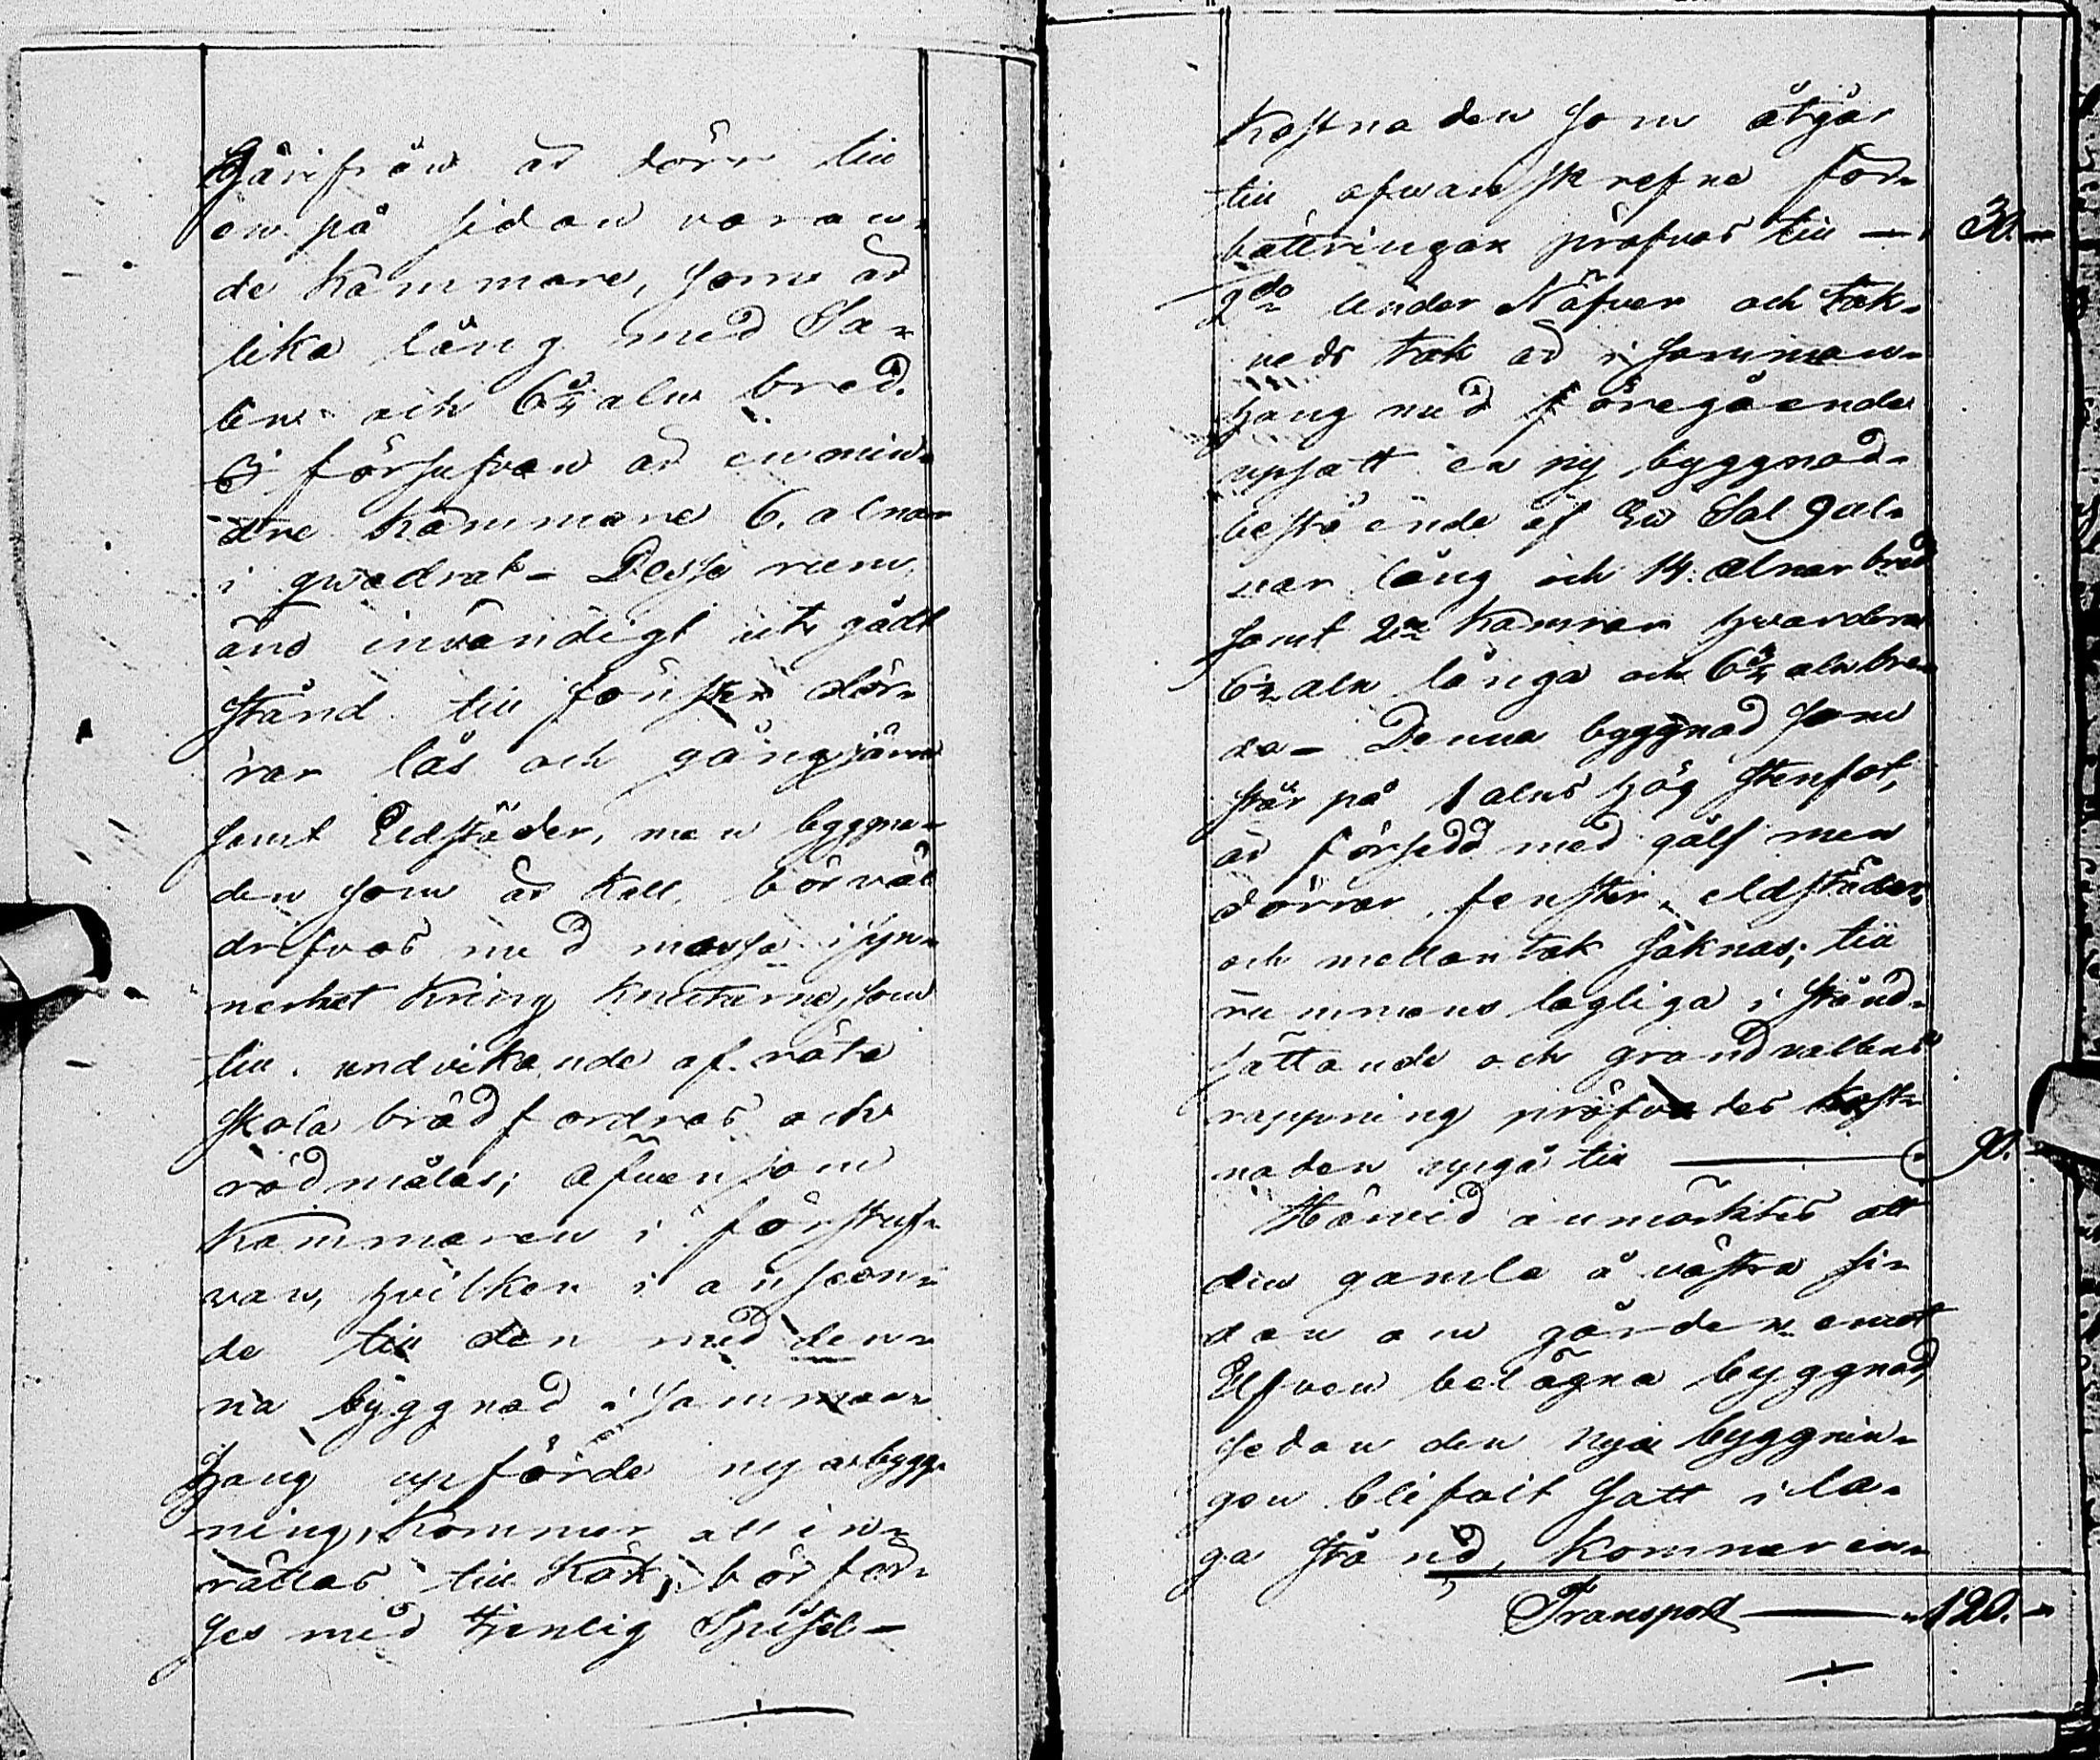 Härifrån är dörr till
en på sidan varan-
de Kammare, som är
lika lång med Sa-
len och 6 3/4 aln bred.
I förstufvan är en min-
dre Kammare 6. alnar
i qwadrat - Dessa rum,
äro invändigt uti godt
stånd till fönster dör-
rar lås och gångjärn
samt Eldstäder, men byggna-
den som är kall, bör väl
drefvas med mossa isyn-
nerhet kring knutarne, som
till undvikande af röta
skola brädfordras och
rödmålas; äfvensom
Kammaren i förstuf-
van, hvilken i anseen-
de till den med den-
na byggnad i samman-
hang upförde nya bygg-
ning, kommer att in-
rättas till Kök, bör för-
ses med tjenlig Spisel-
Kostnaden som åtgår
till ofvanskrefne för-
bättringar pröfvas till — 30.—
2do Under Näfver och tak-
veds tak är i samman-
hang med föregående
upsatt en ny byggnad-
bestående af En Sal 9 al-
nar lång och 14. alnar bred
samt 2ne Kamrar hvardera
6 1/2 aln långa och 6 3/4 aln bre-
da - Denna byggnad som
står på 1 alns hög stenfot,
är försedd med golf men
dörrar, fenster, eldstäder
och mellantak saknas; till
rummens lagliga i stånd-
sättande och grundvallens
rappning pröfvades kost-
naden upgå till — 90.—
Härvid anmärktes att
den gamla å västra si-
dan om gården emot
Elfven belägna byggnad
sedan den nya byggnin-
gen blifvit satt i la-
ga stånd, kommer en-
Transport — 120.—